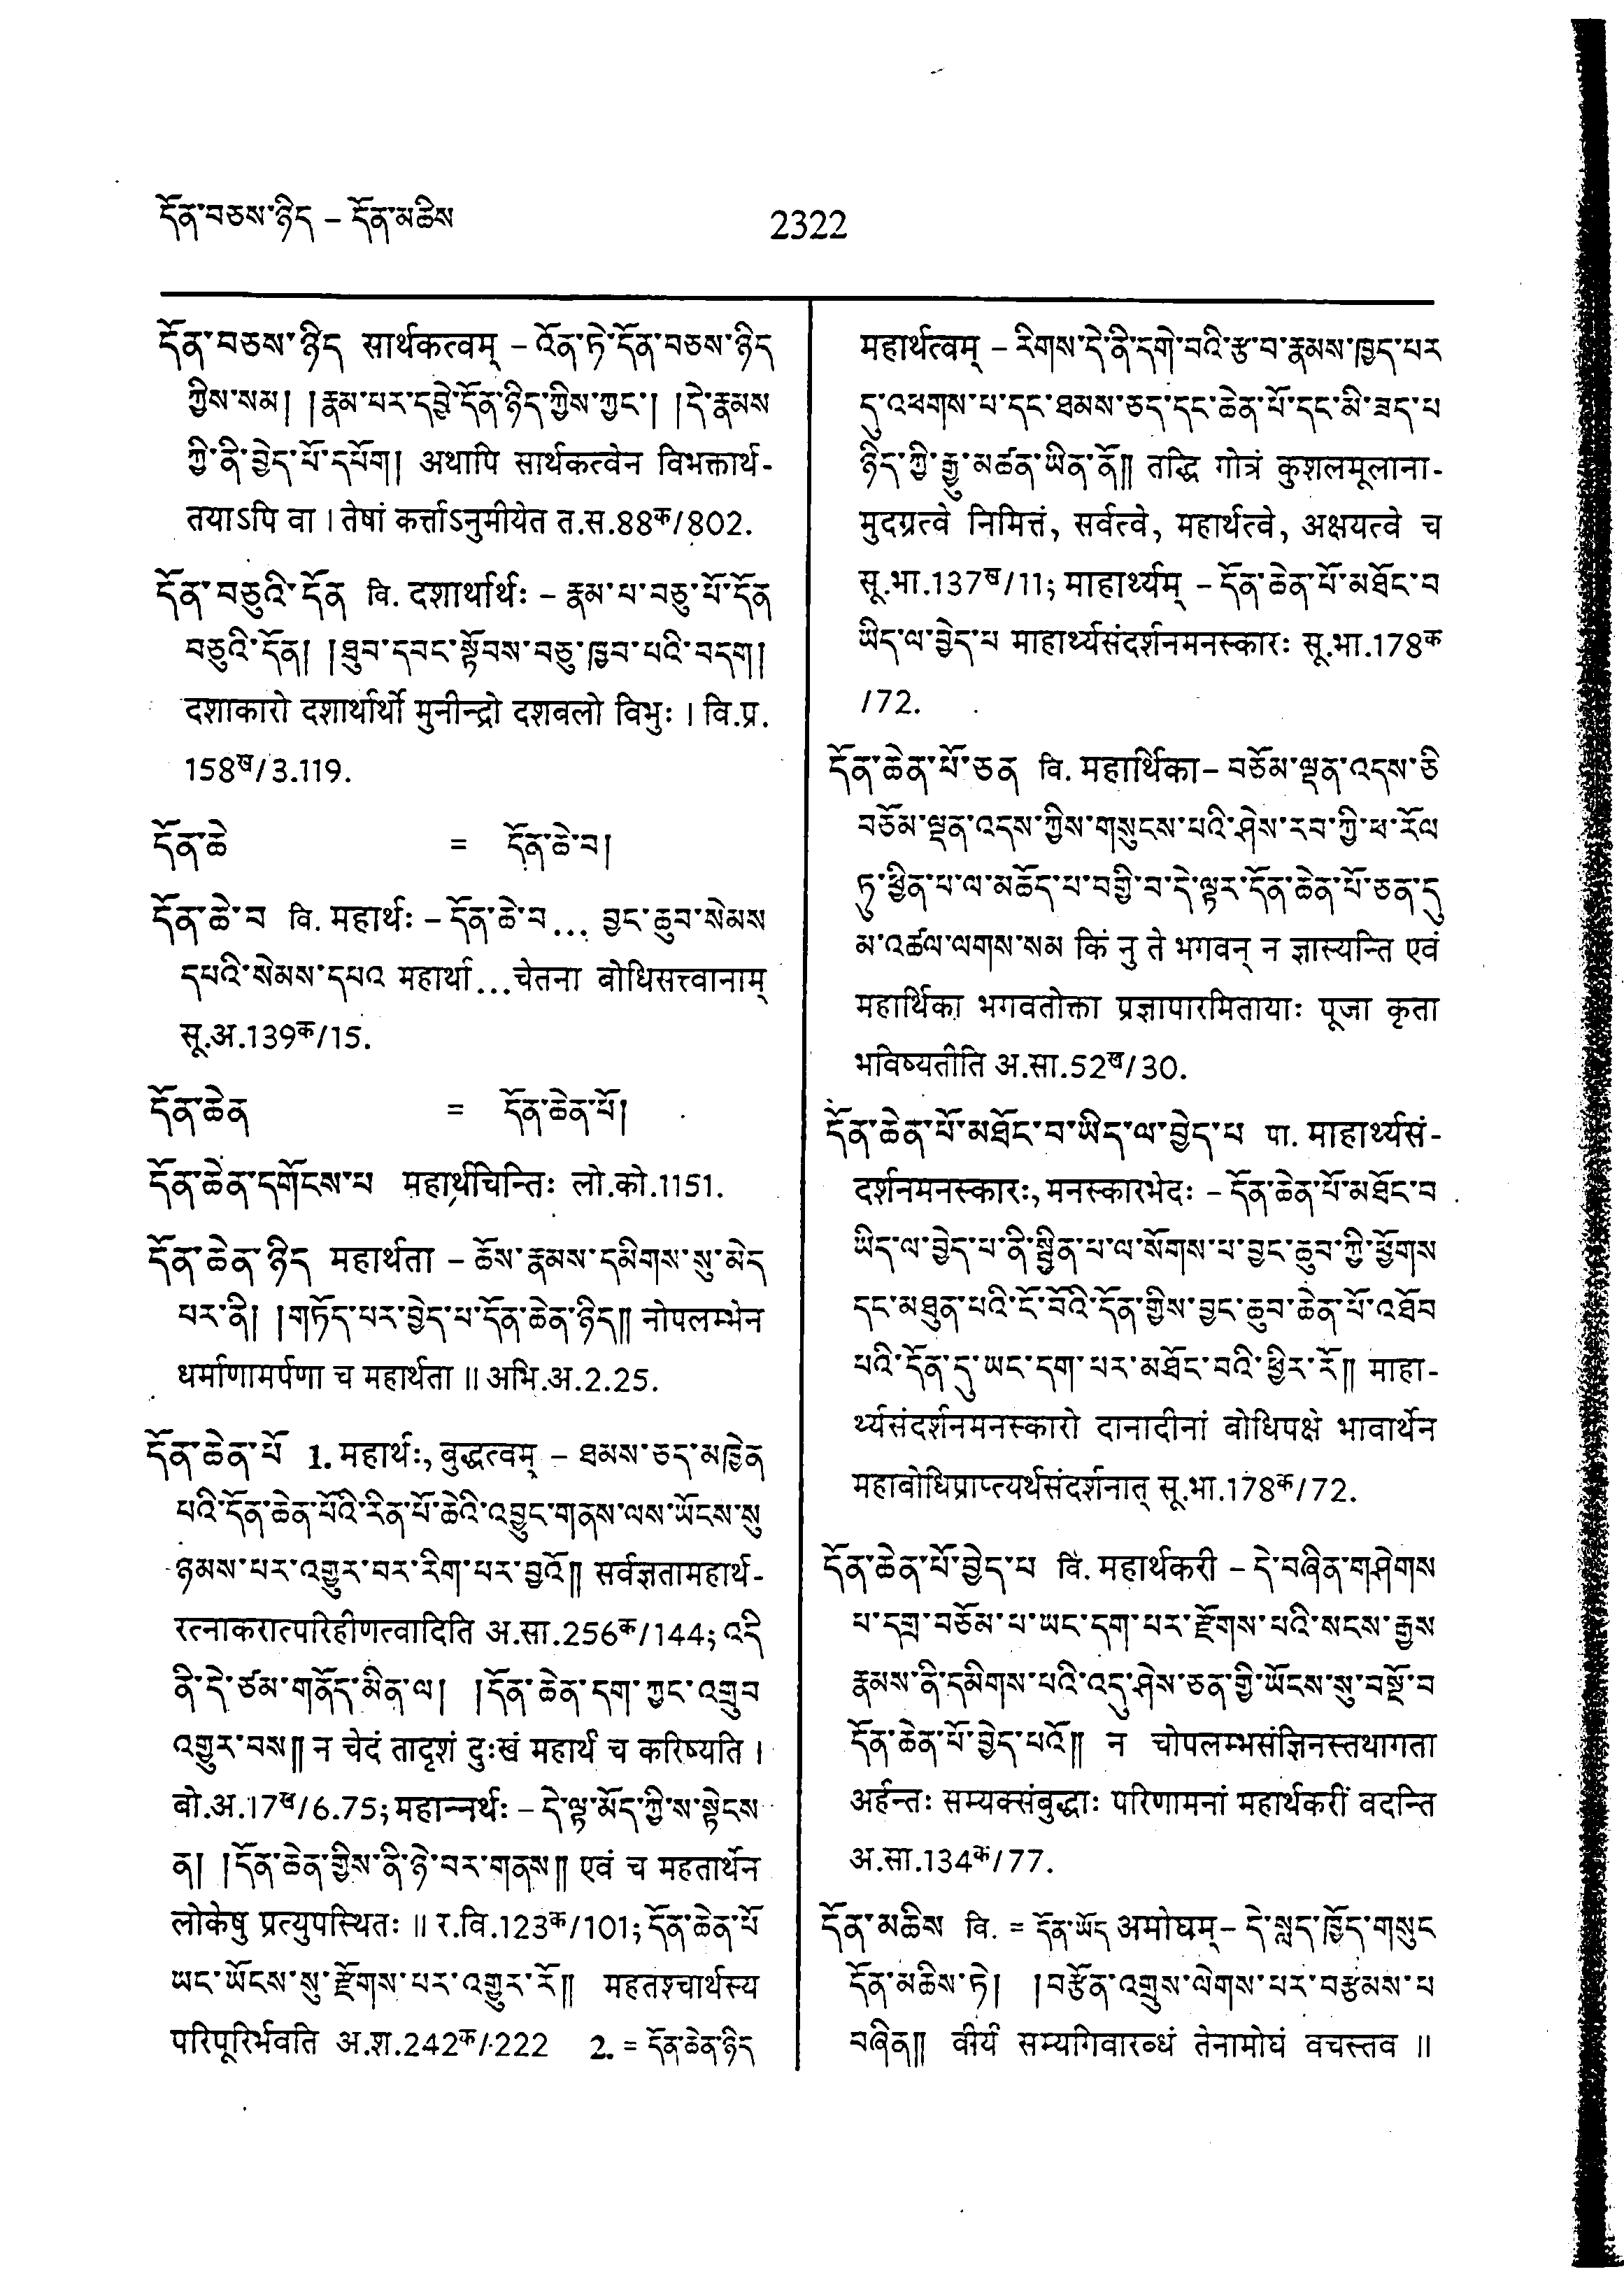 དོན་བཅས་ཉིད – དོན་མཆིས
2322
དོན་བཅས་ཉིད सार्थकत्वम् – འོན་ཏེ་དོན་བཅས་ཉིད
ཀྱིས་སམ། །རྣམ་པར་དབྱེ་དོན་ཉིད་ཀྱིས་ཀྱང་། །དེ་རྣམས
ཀྱི་ནི་བྱེད་པོ་དཔོག། अथापि सार्थकत्वेन विभक्तार्थ-
तयाऽपि वा । तेषां कर्त्ताऽनुमीयेत त.स.88क/802.
དོན་བཅུའི་དོན वि. दशार्थार्थः – རྣམ་པ་བཅུ་པོ་དོན
བཅུའི་དོན། །ཐུབ་དབང་སྟོབས་བཅུ་ཁྱབ་པའི་བདག།
दशाकारो दशार्थार्थो मुनीन्द्रो दशबलो विभुः । वि.प्र.
158ख/3.119.
དོན་ཆེ = དོན་ཆེ་བ།
དོན་ཆེ་བ वि. महार्थः – དོན་ཆེ་བ... བྱང་ཆུབ་སེམས
དཔའི་སེམས་དཔའ महार्था...चेतना बोधिसत्त्वानाम्
सू.अ.139क/15.
དོན་ཆེན = དོན་ཆེན་པོ།
དོན་ཆེན་དགོངས་པ महार्थचिन्तिः लो.को.1151.
དོན་ཆེན་ཉིད महार्थता – ཆོས་རྣམས་དམིགས་སུ་མེད
པར་ནི། །གཏོད་པར་བྱེད་པ་དོན་ཆེན་ཉིད༎ नोपलम्भेन
धर्माणामर्पणा च महार्थता ॥ अभि.अ.2.25.
དོན་ཆེན་པོ 1. महार्थः, बुद्धत्वम् – ཐམས་ཅད་མཁྱེན
པའི་དོན་ཆེན་པོའི་རིན་པོ་ཆེའི་འབྱུང་གནས་ལས་ཡོངས་སུ
ཉམས་པར་འགྱུར་བར་རིག་པར་བྱའོ༎ सर्वज्ञतामहार्थ-
रत्नाकरात्परिहीणत्वादिति अ.सा.256क/144; འདི
ནི་དེ་ཙམ་གནོད་མིན་ལ། །དོན་ཆེན་དག་ཀྱང་འགྲུབ
འགྱུར་བས༎ न चेदं तादृशं दुःखं महार्थं च करिष्यति ।
बो.अ.17ख/6.75; महान्नर्थः – དེ་ལྟ་མོད་ཀྱི་ས་སྟེངས
ན། །དོན་ཆེན་གྱིས་ནི་ཉེ་བར་གནས༎ एवं च महतार्थेन
लोकेषु प्रत्युपस्थितः ॥ र.वि.123क/101; དོན་ཆེན་པོ
ཡང་ཡོངས་སུ་རྫོགས་པར་འགྱུར་རོ༎ महतश्चार्थस्य
परिपूरिर्भवति अ.श.242क/222 2. = དོན་ཆེན་ཉིད
महार्थत्वम् – རིགས་དེ་ནི་དགེ་བའི་རྩ་བ་རྣམས་ཁྱད་པར
དུ་འཕགས་པ་དང་ཐམས་ཅད་དང་ཆེན་པོ་དང་མི་ཟད་པ
ཉིད་ཀྱི་རྒྱུ་མཚན་ཡིན་ནོ༎ तद्धि गोत्रं कुशलमूलाना-
मुदग्रत्वे निमित्तं, सर्वत्वे, महार्थत्वे, अक्षयत्वे च
सू.भा.137ख/11; माहार्थ्यम् – དོན་ཆེན་པོ་མཐོང་བ
ཡིད་ལ་བྱེད་པ माहार्थ्यसंदर्शनमनस्कारः सू.भा.178क
/72.
དོན་ཆེན་པོ་ཅན वि. महार्थिका – བཅོམ་ལྡན་འདས་ཅི
བཅོམ་ལྡན་འདས་ཀྱིས་གསུངས་པའི་ཤེས་རབ་ཀྱི་ཕ་རོལ
ཏུ་ཕྱིན་པ་ལ་མཆོད་པ་བགྱི་བ་དེ་ལྟར་དོན་ཆེན་པོ་ཅན་དུ
མ་འཚལ་ལགས་སམ किं नु ते भगवन् न ज्ञास्यन्ति एवं
महार्थिका भगवतोक्ता प्रज्ञापारमितायाः पूजा कृता
भविष्यतीति अ.सा.52ख/30.
དོན་ཆེན་པོ་མཐོང་བ་ཡིད་ལ་བྱེད་པ पा. माहार्थ्यसं-
दर्शनमनस्कारः, मनस्कारभेदः – དོན་ཆེན་པོ་མཐོང་བ
ཡིད་ལ་བྱེད་པ་ནི་སྦྱིན་པ་ལ་སོགས་པ་བྱང་ཆུབ་ཀྱི་ཕྱོགས
དང་མཐུན་པའི་ངོ་བོའི་དོན་གྱིས་བྱང་ཆུབ་ཆེན་པོ་འཐོབ
པའི་དོན་དུ་ཡང་དག་པར་མཐོང་བའི་ཕྱིར་རོ༎ माहा-
र्थ्यसंदर्शनमनस्कारो दानादीनां बोधिपक्षे भावार्थेन
महाबोधिप्राप्त्यर्थसंदर्शनात् सू.भा.178क/72.
དོན་ཆེན་པོ་བྱེད་པ वि. महार्थकरी – དེ་བཞིན་གཤེགས
པ་དགྲ་བཅོམ་པ་ཡང་དག་པར་རྫོགས་པའི་སངས་རྒྱས
རྣམས་ནི་དམིགས་པའི་འདུ་ཤེས་ཅན་གྱི་ཡོངས་སུ་བསྔོ་བ
དོན་ཆེན་པོ་བྱེད་པའོ༎ न चोपलम्भसंज्ञिनस्तथागता
अर्हन्तः सम्यक्संबुद्धाः परिणामनां महार्थकरीं वदन्ति
अ.सा.134क/77.
དོན་མཆིས वि. = དོན་ཡོད अमोघम् – དེ་སླད་ཁྱོད་གསུང
དོན་མཆིས་ཏེ། །བརྩོན་འགྲུས་ལེགས་པར་བརྩམས་པ
བཞིན༎ वीर्यं सम्यगिवारब्धं तेनामोघं वचस्तव ॥